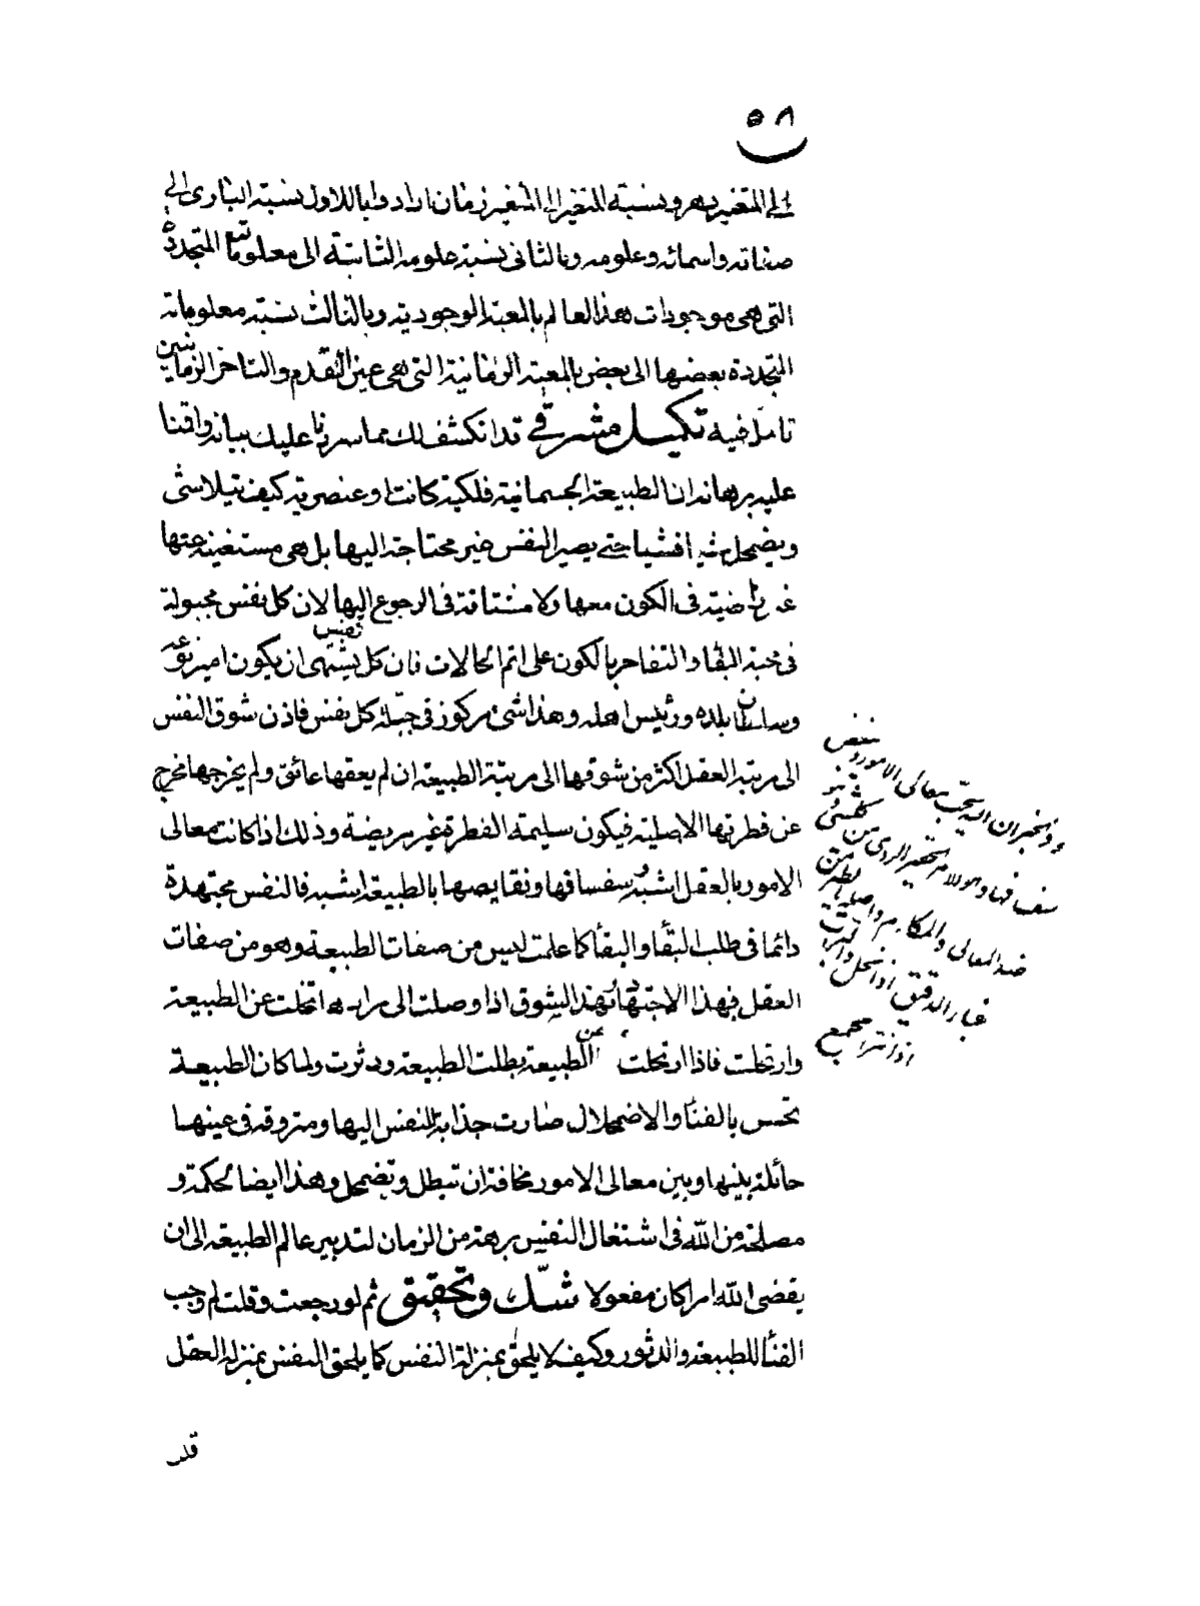 ٥٨
الى المتغير دهر و نسبة المتغير الى المتغير زمان ارادوا بالاول نسبة البارى الى
صفاته واسمائه وعلومه وبالثانى نسبة علومه الثابتة الى معلوماته المتجددة
التى هى موجودات هذا العالم بالمعية الوجودية وبالثالث نسبة معلوماته
المتجددة بعضها الى بعض بالمعية الزمانية التى هى عين التقدم والتاخر الزمانيين
تامل فيه تكميل مشرقى قد انكشف لك مما سردنا عليك بيانه واقمنا
عليه برهانه ان الطبيعة الجسمانية فلكية كانت او عنصرية كيف يتلاشى
ويضمحل شيئا فشيئا حتى يصير النفس غير محتاجة اليها بل هى مستغنية عنها
غير راضية فى الكون معها ولا مشتاقة فى الرجوع اليها لان كل نفس مجبولة
فى محبة البقاء والتفاخر بالكون على اتم الحالات فان كل نفس يشتهى ان يكون امير نوعه
وسلطان بلده ورئيس اهله وهذا شئ مركوز فى جبلة كل نفس فاذن شوق النفس
الى مرتبة العقل اكثر من شوقها الى مرتبة الطبيعة ان لم يعقها عائق ولم يخرجها مخرج
عن فطرتها الاصلية فيكون سليمة الفطرة غير مريضة وذلك اذا كانت معالى
الامور بالعقل اشبه وسفسافها ونقايصها بالطبيعة اشبه فالنفس مجتهدة
دائما فى طلب البقاء والبقاء كما علمت ليس من صفات الطبيعة وهو من صفات
العقل فبهذا الاجتهاد وبهذا الشوق اذا وصلت الى مرادها تخلت عن الطبيعة
وارتحلت فاذا ارتحلت عن الطبيعة بطلت الطبيعة ودثرت ولما كان الطبيعة
تحس بالفناء والاضمحلال صارت جذابة للنفس اليها ومزوقة فى عينها
حائلة بينها وبين معالى الامور مخافة ان تبطل وتضمحل وهذا ايضا لحكمة و
مصلحة من الله فى اشتغال النفس برهة من الزمان لتدبير عالم الطبيعة الى ان
يقضى الله امرا كان مفعولا شك وتحقيق ثم لو رجعت وقلت لم وجب
الفناء للطبيعة والدثور وكيف لا يلحق بمنزلة النفس كما يلحق النفس بمنزلة العقل
وفى الخبر ان الله يحب معالى الامور ويبغض
سفسافها وهو الامر الحقير الردى من كل شئ وهو
ضد المعالى والمكارم واصله ما يطير من
غبار الدقيق اذا نخل والتراب
اذا اثير مجمع
قد